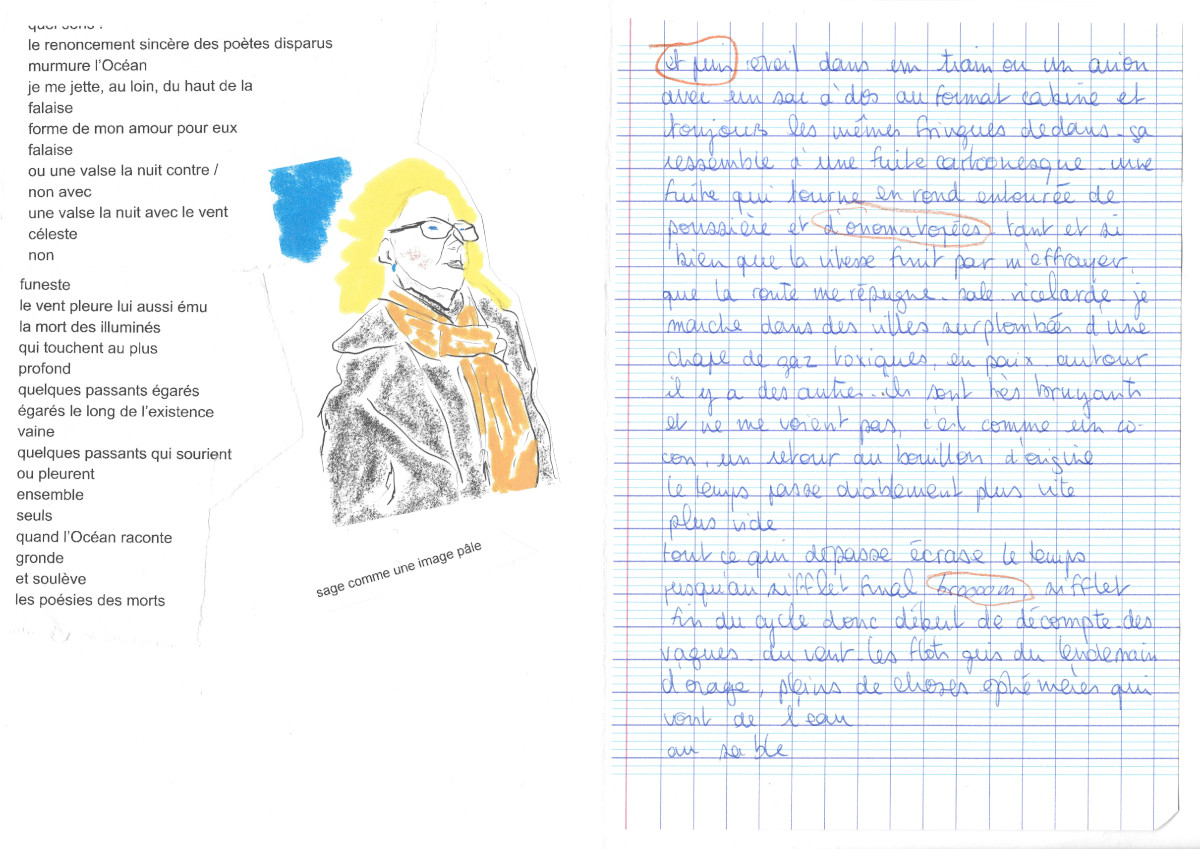 quel sens ?
le renoncement sincère des poètes disparus
murmure l'Océan
je me jette, au loin, du haut de la
falaise
forme de mon amour pour eux
falaise
ou une valse la nuit contre /
non avec
une valse la nuit avec le vent
céleste
non
funeste
le vent pleure lui aussi ému
la mort des illuminés
qui touchent au plus
profond
quelques passants égarés
égarés le long de l'existence
vaine
quelques passants qui sourient
ou pleurent
ensemble
seuls
quand l'Océan raconte
gronde
et soulève
les poésies des morts
sage comme une image pâle
et puis dans un train ou un avion
avec un sac à dos au format cabine et
toujours les mêmes fringues dedans - ça
ressemble à une fuite cartoonesque - une
fuite qui tourne en rond entourée de
poussière et d'onomatopées tant et si
bien que la vitesse finit par m'effrayer,
que la route me répugne - sale - je
marche dans des villes surplombées d'une
chape de gaz toxiques, en paix autour
il y a des autres.. ils sont très bruyants
et ne me voient pas, c'est comme un co-
con, un retour au bouillon d'origine
le temps passe diablement plus vite
plus vide
tout ce qui dépasse écrase le temps
jusqu'au sifflet final broooom, sifflet
fin du cycle donc début de décompte - des
vagues - du vent - les flots gris du lendemain
d'orage, pleins de choses éphémères qui
vont de l'eau
au sable